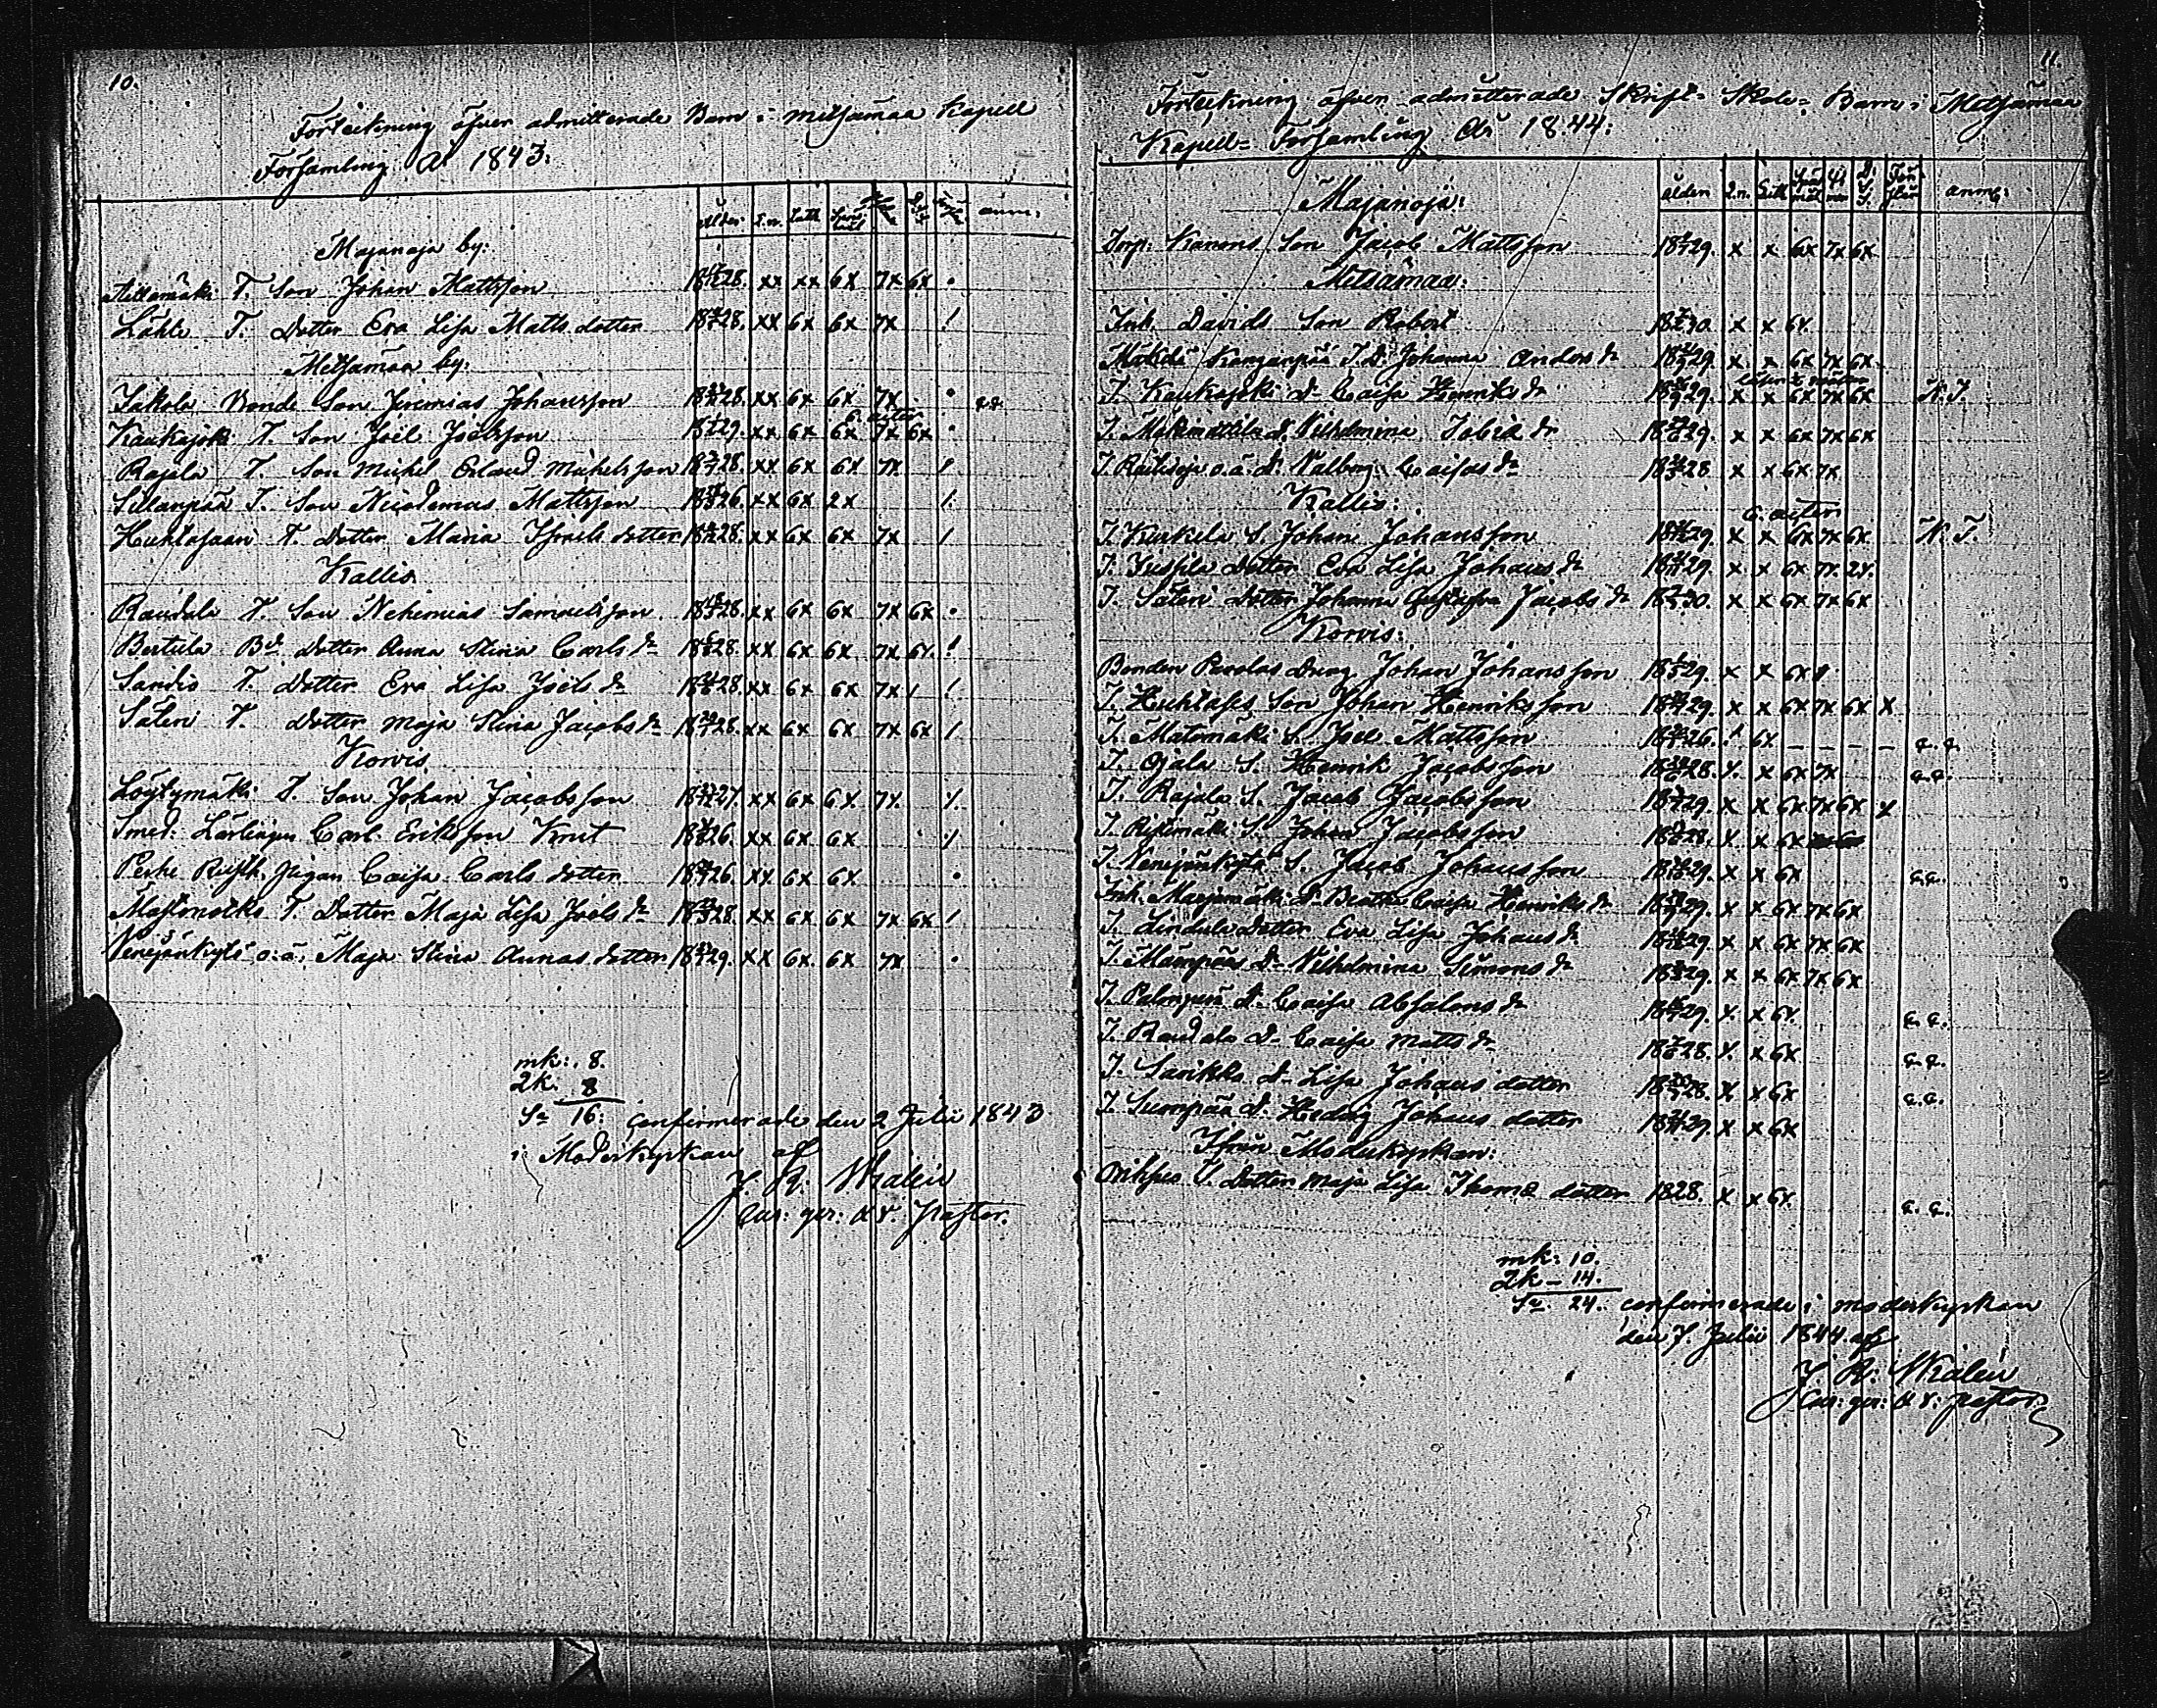 10.
Förteckning öfver admitterade Barn i Metsämaa Kapell
Församling År 1843:
Ålder. I.n. Luth. anm:
Majanoja by:
T. Son Johan Mattsson 1828. xx xx 6x 7x 6x
Lähte T. Dotter Eva Lisa Matts dotter 1828. xx 6x 6x 7x /
Metsämaa by:
Jakola Bonde Son Jeremias Johansson 1828. xx 6x 6x 7x q.q.
Kaukajoki T. Son Joël Joelsson 1829. xx 6x 6x 7x 6x
Rajala T. Son Michel Erland Michelsson 1828. xx 6x 6x 7x /
Sillanpää T. Son Nicodemus Mattsson 1826. xx 6x 2x /.
Huhtasaari T. Dotter Maria Israels dotter 1828. xx 6x 6x 7x /
Kallis
Raudala T. Son Nehemias Samuelsson 1828. xx 6x 6x 7x 6x
Bertula Bd. Dotter Anna Stina Carls dr 1828. xx 6x 6x 7x 6x. /
Sandis T. Dotter Eva Lisa Joëls dr 1828. xx 6x 6x 7x / /
Säteri T. Dotter Maja Stina Jacobs dr 1828. xx 6x 6x 7x 6x /
Korvis
Löytymäki T. Son Johan Jacobsson 1827. xx 6x 6x 7x. /.
Smed: Lärlingen Carl Eriksson Knut 1826. xx 6x 6x /
Rusth. Pigan Caisa Carls dotter 1826. xx 6x 6x
T. Dotter Maja Lisa Joëls dr 1828. xx 6x 6x 7x 6x /
Venejänkytö o.ä. Maja Stina Annas dotter 1829. xx 6x. 6x 7x
mk: 8.
2k. 8
Sa 16: confirmerade den 2 Julii 1843
i Moderkyrkan af
J. R. Malin
Cur: ger: & v. Pastor.
11.
Förteckning öfver admitterade Skrift= Skole= Barn i Metsämaa
Kapell= Församling År 1844:
Majanoja: Ålder I.n. Luth anm:
Torp: Kanons Son Jacob Mattsson 1829. x x 6x 7x 6x
Metsämaa:
Inh. Davids Son Robert 1830. x x 6x.
Kanganpää T. D: Johanna Anders dr 1829. x x 6x 7x 6x
T. Kaukajoki D. Caisa Henriks dr 1829. x x 6x 7x 6x N. T.
T. D. Vilhelmina Tobias dr 1829. x x 6x 7x 6x
T. o.ä. D. Valborg Caisas dr 1828 x x 6x 7x
Kallis:
T. Kurkela S. Johan Johansson 1829. x x 6x 7x 6x. N. T.
T. Dotter Eva Lisa Johans dr 1829. x x 6x 7x. 2x.
T. Säteri Dotter Johanna Gustafva Jacobs dr 1830. x x 6x 7x 6x
Korvis:
Bonden Perolas Dräng Johan Johansson 1829. x x 6x
T. Huhtases Son Johan Henriksson 1829. x x 6x 7x 6x x
T. Matomäki S. Joël Mattsson 1826. / 6x — — — — q. q.
T. Ojala S. Henrik Jacobsson 1828. x. x 6x 7x q.q.
T. Rajala S. Jacob Jacobsson 1829. x x 6x 7x 6x x
T. Ristimäki S. Johan Jacobsson 1828. x. x 6x
T. Venejänkytö S. Jacob Johansson 1829. x x 6x q.q.
Inh. Marjamäki D. Beatha Caisa Henriks dr 1829. x x 6x 7x 6x
T. Lindula Dotter Eva Lisa Johans dr 1829. x x 6x 7x 6x
T. D. Vilhelmina Simons dr 1829. x x 6x 7x 6x
T. Palonpää D. Caisa Absalons dr 1829. x. x 6x. q. q.
T. Raudala D. Caisa Matts dr 1828. x. x 6x q.q.
T. Sarikka D. Lisa Johans dotter 1828. x x 6x q.q.
T. D. Hedvig Johans dotter 1829. x x 6x
Ifrån Moderkyrkan:
T. Dotter Maja Lisa Thomæ dotter 1828. x x 6x. q. q.
mk: 10.
2k — 14.
Sa. 24. confirmerade i moderkyrkan
den 7. Julii 1844 af
J. R: Malin
Cur: ger: & v: Pastor.